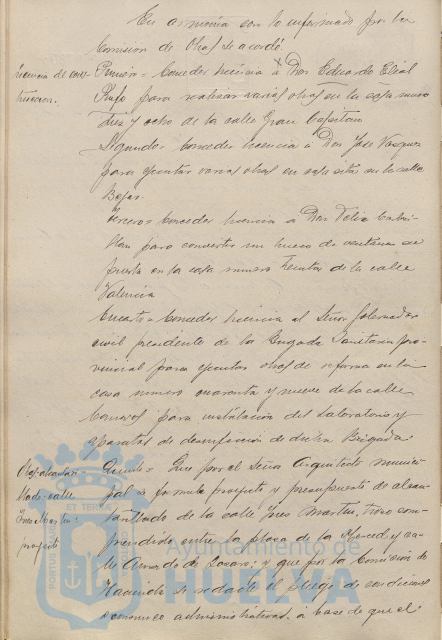 En armonía con lo informado por la
Comision de Obras se acordó.
licencia de cons-
truccion.
Primero = Conceder licencia a Don Eduardo
Rufo para realizar varias obras en la casa numero
diez y ocho de la calle Gran Capitan
Segundo = Conceder licencia a Don José Vazquez
para ejecutar varias obras en casa sita en la calle
Bejar.
Tercero = Conceder licencia a Don
para convertir un hueco de ventana en
puerta en la casa numero treinta de la calle
Valencia
Cuarto = Conceder licencia al Señor Gobernador
civil presidente de la Brigada Sanitaria pro-
vincial para ejecutar obras de reforma en la
casa numero cuarenta y nueve de la calle
para instalación del Laboratorio y
aparatos de desinfección de dicha Brigada
Alcantari-
llado calle
proyecto
Quinto = Que por el Señor Arquitecto munici-
pal se formule proyecto y presupuesto de alcan-
tarillado de la calle trozo com-
prendido entre la plaza de la Merced y ca-
lle y que por la Comisión de
Hacienda se redacte el pliego de condiciones
economico administrativas, a base de que el
Ayuntamiento de
HUELVA